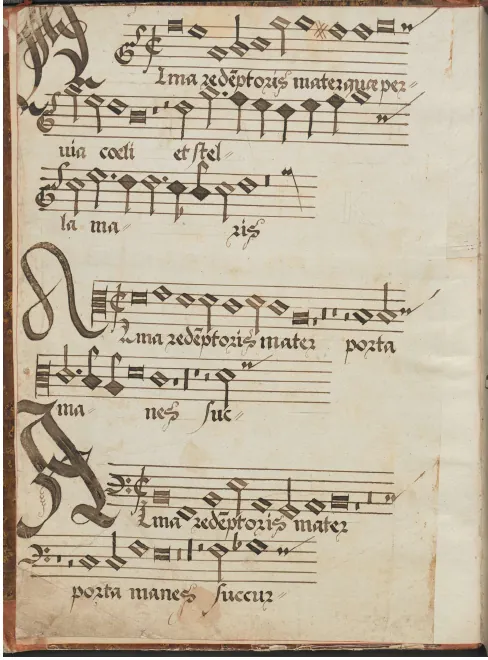 Alma redēptoris mater quæ per-
uia coeli et stel-
la ma- ris
Alma redēptoris mater porta
ma- nes suc-
Alma redēptoris mater
porta manes succur-